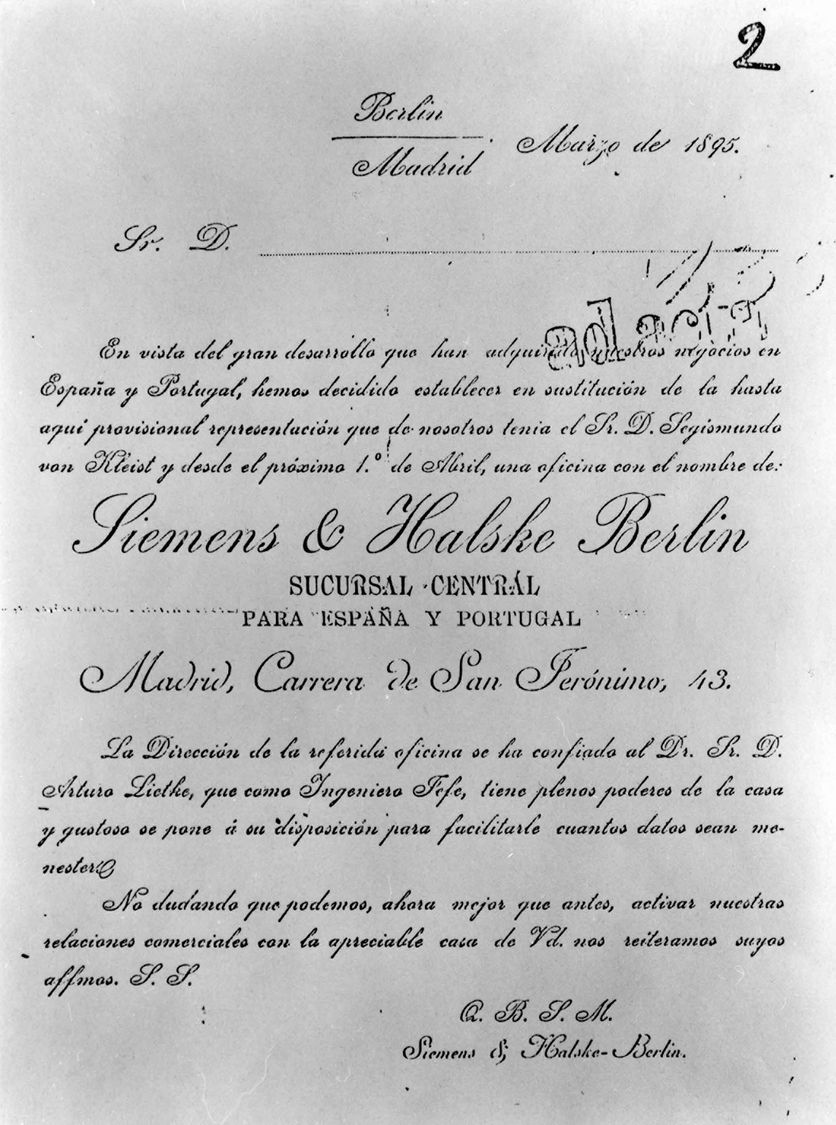 2
Berlin
Madrid
Marzo de 1895.
Sr. D.
ad acta
En vista del gran desarrollo que han adquirido nuestros negocios en
España y Portugal, hemos decidido establecer en sustitución de la hasta
aquí provisional representación que de nosotros tenia el Sr. D. Segismundo
von Kleist y desde el próximo 1.º de Abril, una oficina con el nombre de:
Siemens & Halske Berlin
SUCURSAL CENTRÁL
PARA ESPAÑA Y PORTUGAL
Madrid, Carrera de San Jerónimo, 43.
La Dirección de la referida oficina se ha confiado al Dr. Sr. D.
Arturo Lietke, que como Ingeniero Jefe, tiene plenos poderes de la casa
y gustoso se pone á su disposición para facilitarle cuantos datos sean me-
nester.
No dudando que podemos, ahora mejor que antes, activar nuestras
relaciones comerciales con la apreciable casa de Vd. nos reiteramos suyos
affmos. S. S.
Q. B. S. M.
Siemens & Halske-Berlin.